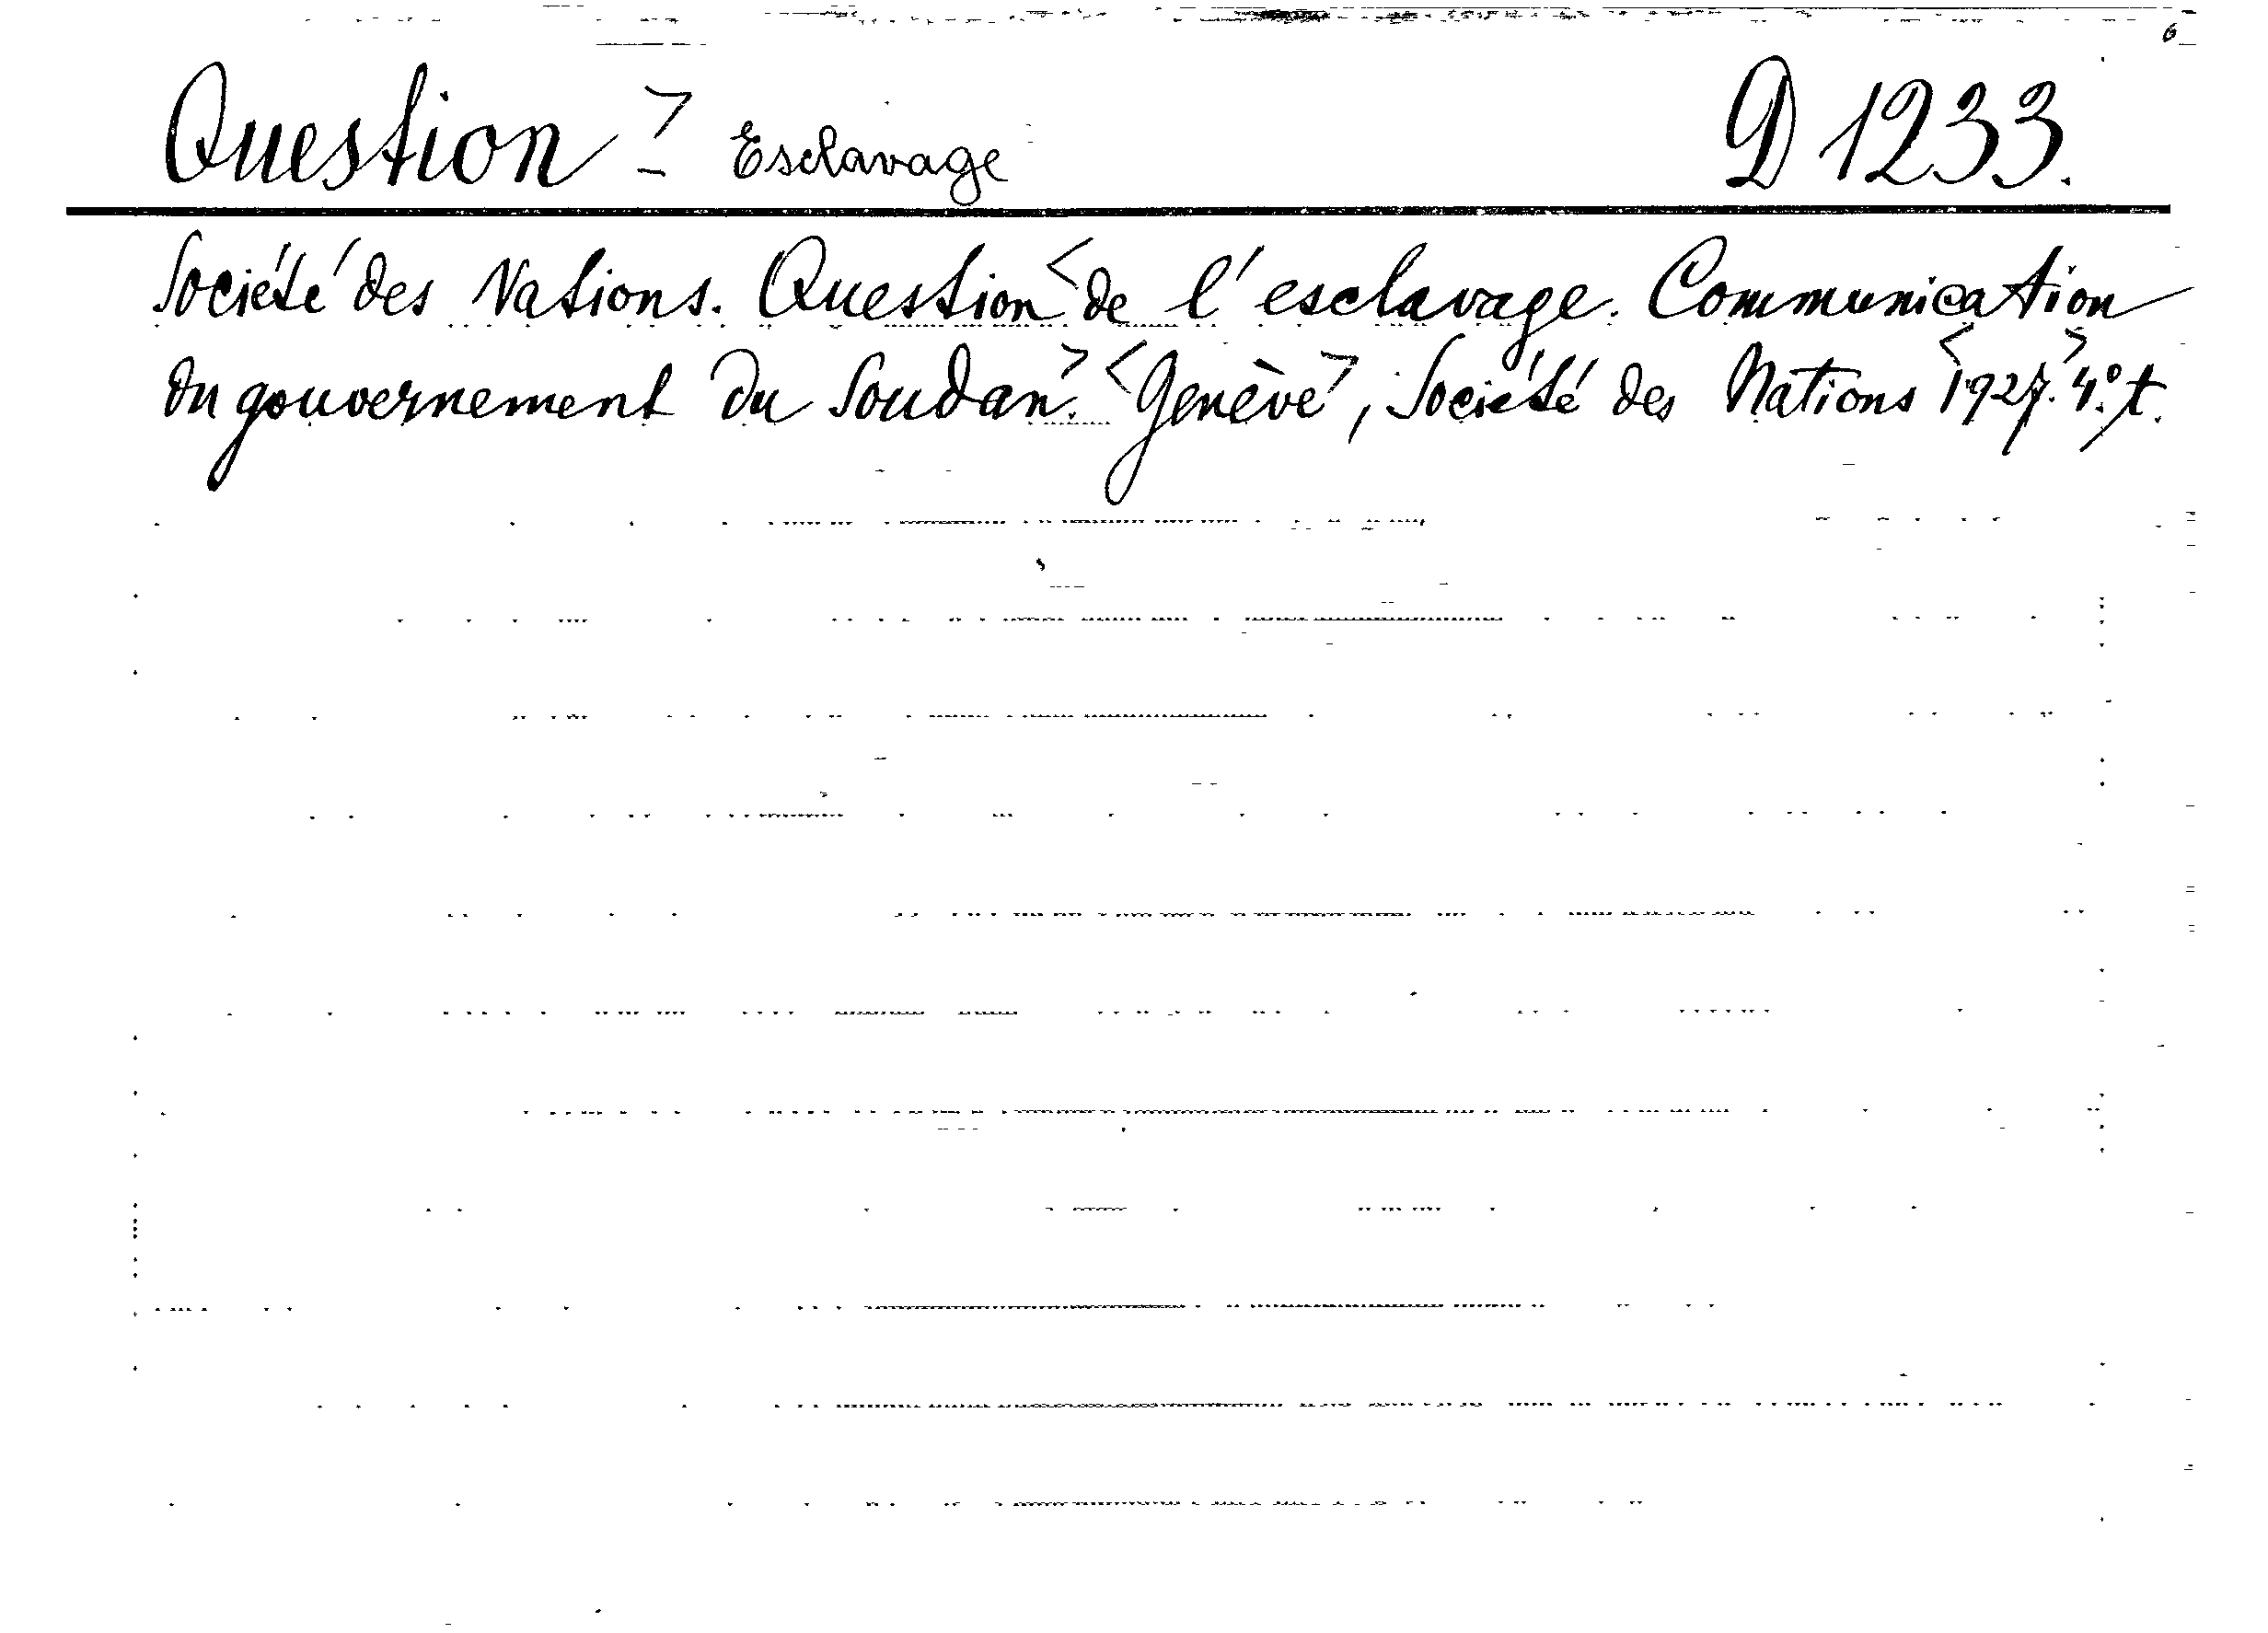 Question > - Esclavage D 1233.
Société des Nations. Question < de l'esclavage. Communication
du gouvernement du Soudan >. < Genève >, Société des Nations < 1927 >. 4.° t.